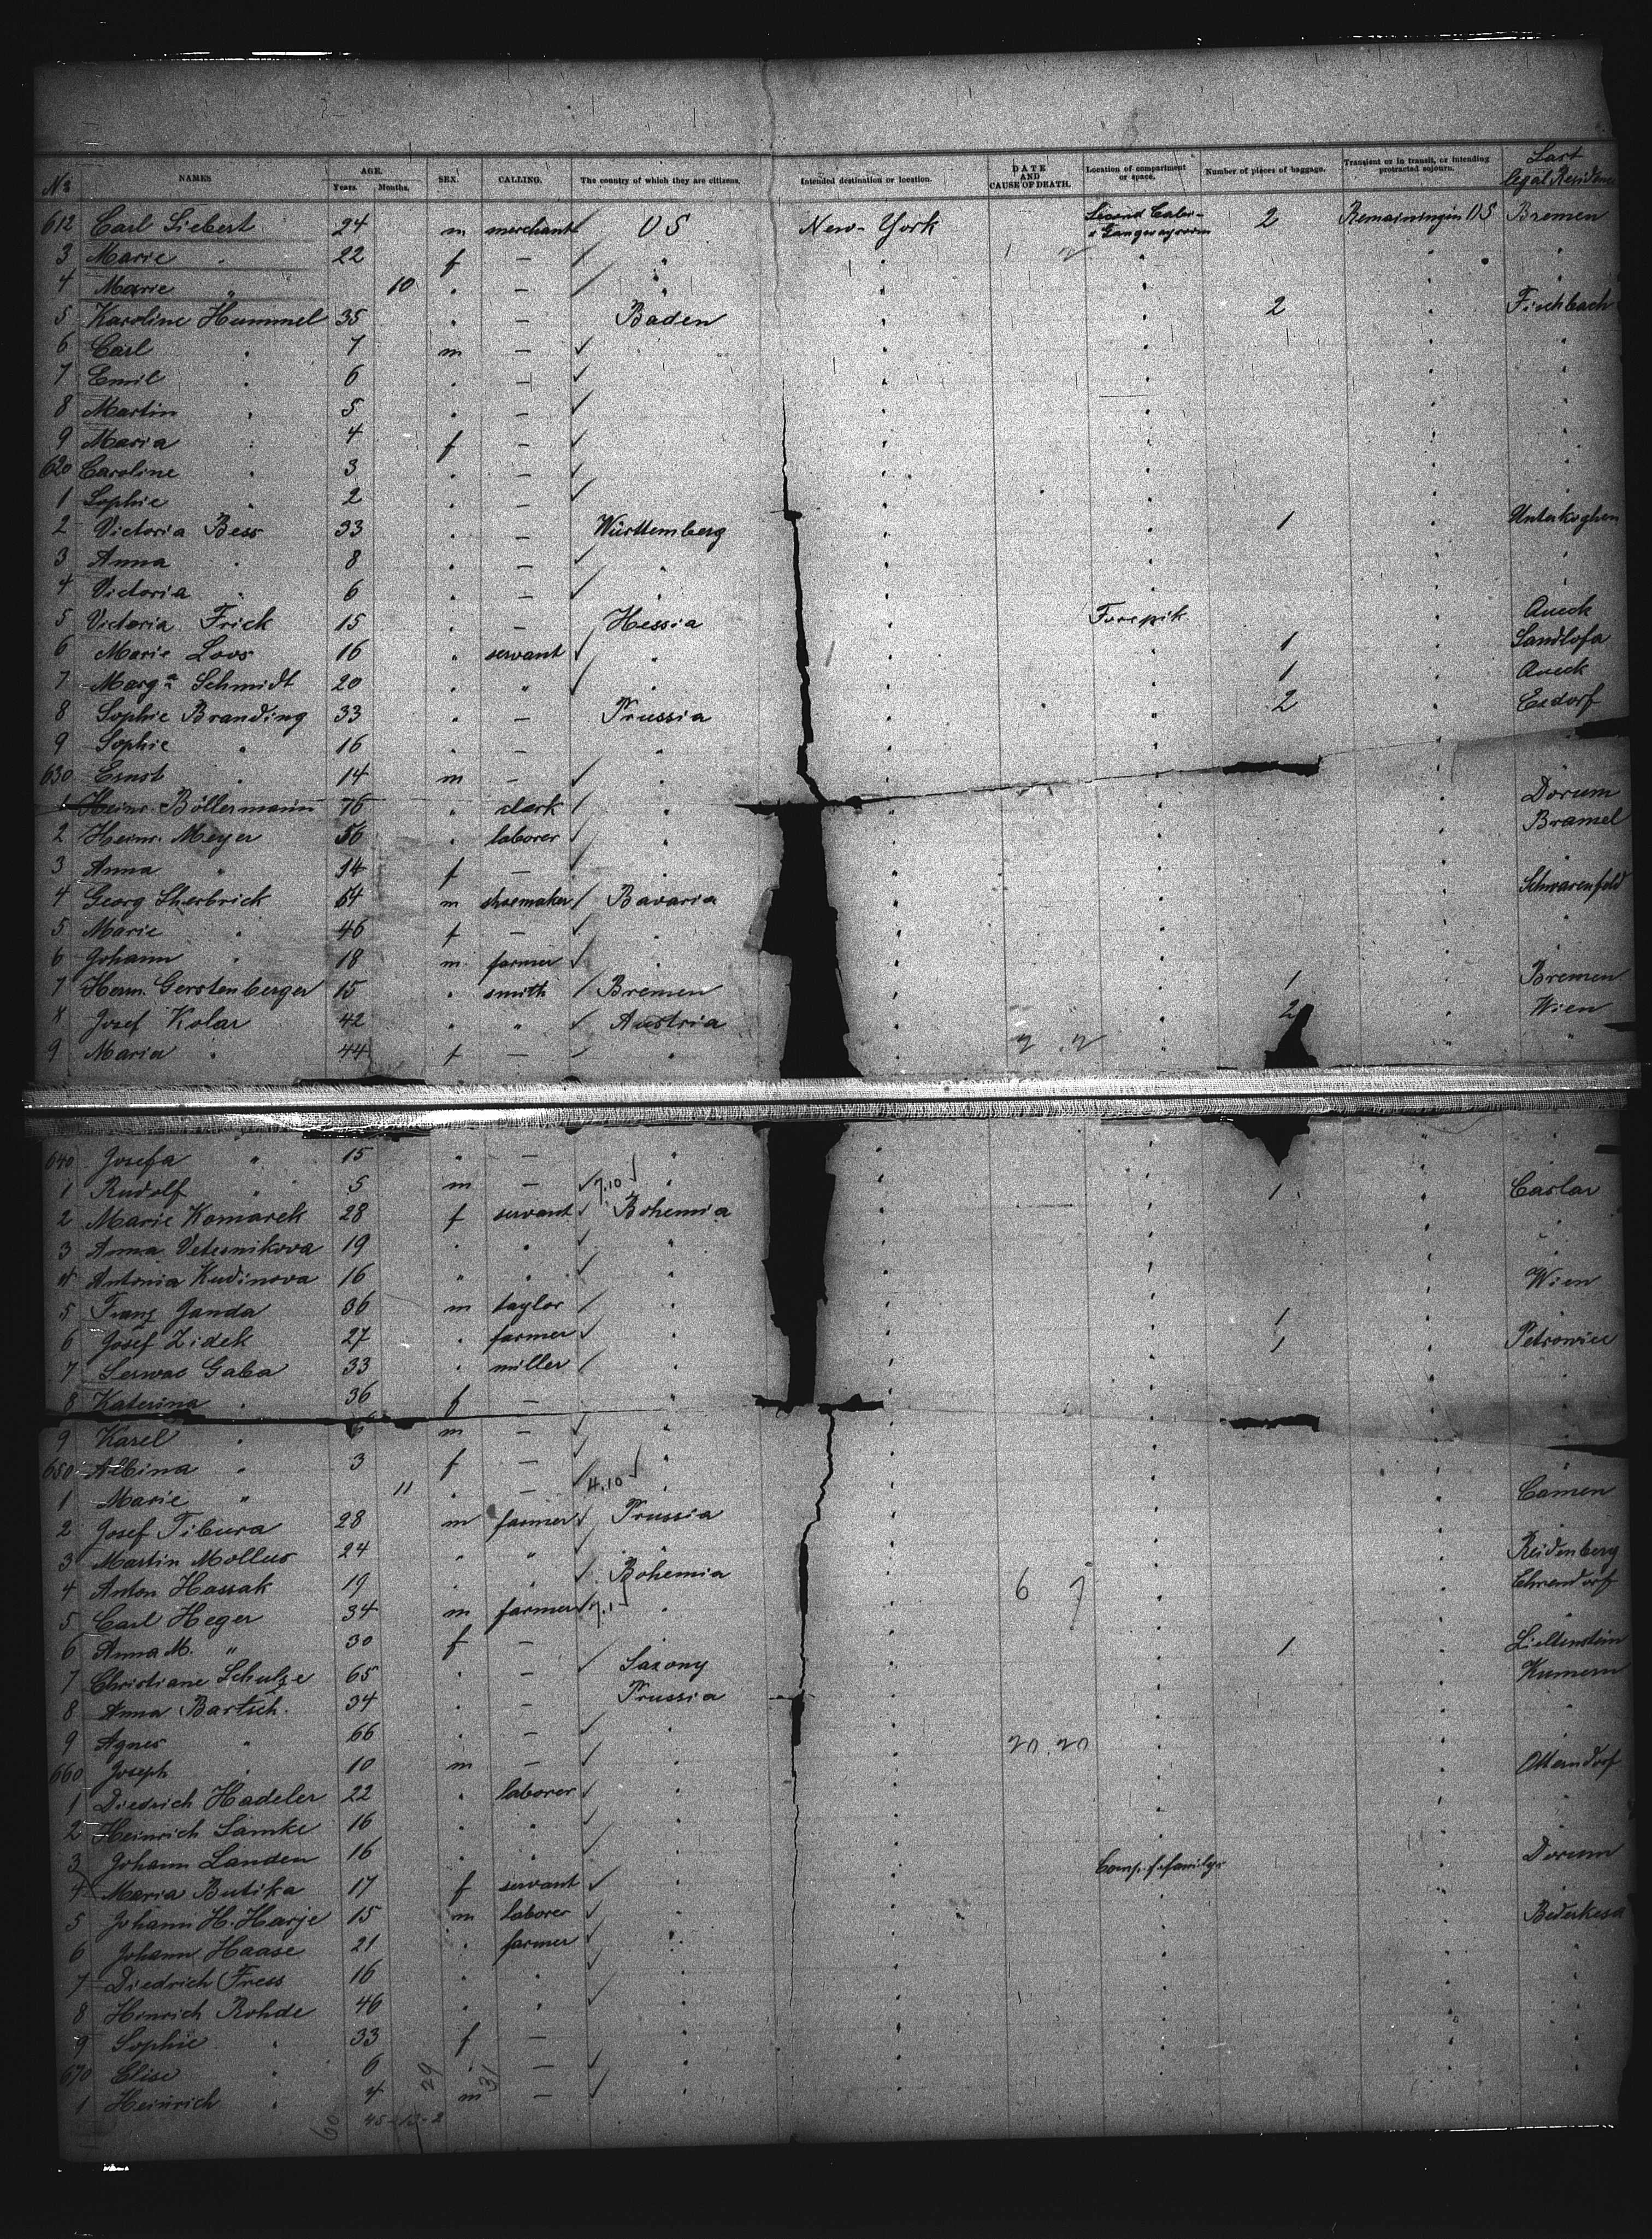 No NAMES AGE. Years. Months. SEX. CALLING. The country of which they are citizens. Intended destination or location. DATE AND CAUSE OF DEATH. Location of compartment or space. Number of pieces of baggage. Transient or in transit, or intending protracted sojourn. Last legal Residence
612 Carl Siebert 24 m merchant / US New-York Second Cabin 2 Remaining in US Bremen
3 Marie " 22 f — / " " " " "
4 Marie " 10 " — / " " " " "
5 Karoline Hummel 35 " — Baden " " 2 " Fischbach
6 Carl " 7 m — ✓ " " " "
7 Emil " 6 " — ✓ " " " "
8 Martin " 5 " — ✓ " " " "
9 Maria " 4 f — ✓ " " " "
620 Caroline " 3 " — ✓ " " " "
1 Sophie " 2 " — ✓ " " " "
2 Victoria Bess 33 " — Württemberg " " 1 " Unterkoghen
3 Anna " 8 " — ✓ " " " " "
4 Victoria " 6 " — ✓ " " " " "
5 Victoria Frick 15 " — Hessia " Forepik " Aueck
6 Marie Loos 16 " servant ✓ " " " 1 " Landlofa
7 Marga Schmidt 20 " " ✓ " " " 1 " Aueck
8 Sophie Branding 33 " — Prussia " " 2 " Exdorf
9 Sophie " 16 " — " " " " "
630 Ernst " 14 m — ✓ " " " " "
1 Heinr. Böllermann 76 " clerk / " " " " Dorum
2 Heinr. Meyer 56 " laborer ✓ " " " " Bramel
3 Anna " 14 f — ✓ " " " " "
4 Georg Sherbrick 64 m shoemaker / Bavaria " " " Schwarenfeld
5 Marie " 46 f — ✓ " " " " "
6 Johann " 18 m farmer ✓ " " " " "
7 Herm. Gerstenberger 15 " smith / Bremen " " 1 " Bremen
8 Josef Kolar 42 " " ✓ Austria " " 2 " Wien
9 Maria " 44 f — ✓ " " 2 2 " " "
640 Josefa " 15 " — " " " " "
1 Rudolf " 5 m — ✓ 7.10 " " " " "
2 Marie Komarek 28 f servant ✓ Bohemia " " 1 " Caslar
3 Anna Vetesnikova 19 " " ✓ " " " " "
4 Antonia Kudinova 16 " " ✓ " " " " "
5 Franz Janda 36 m taylor / " " " 1 " Wien
6 Josef Zidek 27 " farmer ✓ " " " 1 " "
7 Serwac Gaba 33 " miller / " " " " Petrowice
8 Katerina " 36 f — " " " " "
9 Karel " 6 m — ✓ " " " " "
650 Albina " 3 f — ✓ " " " " "
1 Marie " 11 " — ✓ 4.10 " " " " "
2 Josef Tibura 28 m farmer ✓ Prussia " " " Camen
3 Martin Mollus 24 " " ✓ " " " " "
4 Anton Hassak 19 " " ✓ Bohemia " 6 7 " " Reidenberg
5 Carl Heger 34 m farmer ✓ " " " " Ehrendorf
6 Anna M. " 30 f — " " " " "
7 Christiane Schulze 65 " — ✓ Saxony " " 1 " Lichtenstein
8 Anna Bartsch. 34 " — Prussia " " " Kumern
9 Agnes " 66 " — ✓ " " 20 20 " " "
660 Joseph " 10 m — ✓ " " " " "
1 Diedrich Hadeler 22 " laborer ✓ " " " " Otterndorf
2 Heinrich Lamke 16 " " ✓ " " " " "
3 Johann Landen 16 " " ✓ " " " " "
4 Maria Butika 17 f servant ✓ " " Comp. f. familys " Dorum
5 Johann H. Harje 15 m laborer ✓ " " " " "
6 Johann Haase 21 " farmer ✓ " " " " Bederkesa
7 Diedrich Fress 16 " " ✓ " " " " "
8 Hinrich Rohde 46 " " ✓ " " " " "
9 Sophie " 33 f — " " " " "
670 Elise " 6 " — ✓ " " " " "
1 Heinrich " 4 m — ✓ " " " " "
60 29 31